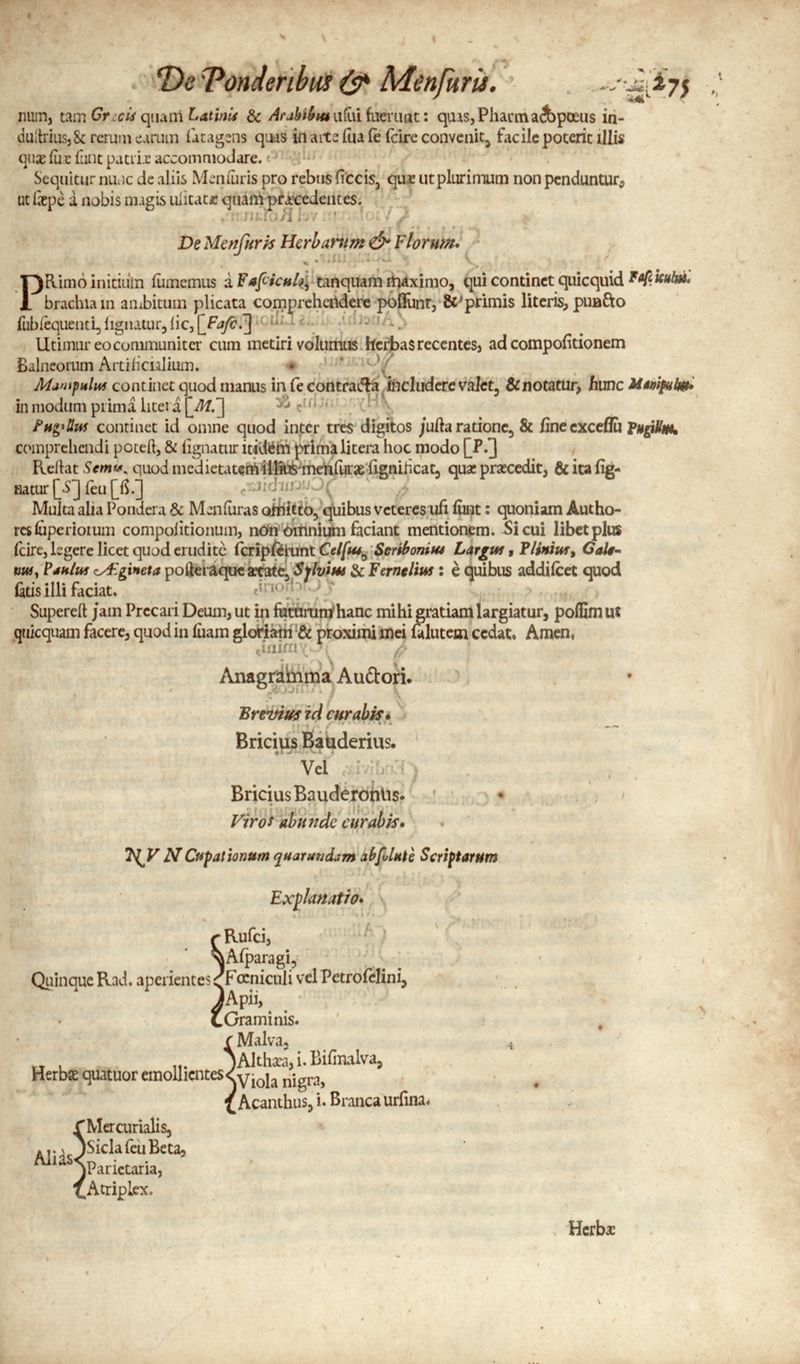 De Ponderibus & Mensuris. 275
num, tam Græcis quam Latinis & Arabibus usui fuerunt: quas, Pharmacopœus in-
dustrius, & rerum earum satagens quas in arte sua se scire convenit, facile poterit illis
quæ suæ sunt patriæ accommodare.
Sequitur nunc de aliis Mensuris pro rebus siccis, quæ ut plurimum non penduntur,
ut sæpè à nobis magis usitatæ quàm præcedentes.
De Mensuris Herbarum & Florum.
PRimò initium sumemus à Fasciculo, tanquam maximo, qui continet quicquid Fasciculus.
brachia in ambitum plicata comprehendere possunt, & primis literis, puncto
subsequenti, signatur, sic, [Fasc.]
Utimur eo communiter cum metiri volumus herbas recentes, ad compositionem
Balneorum Artificialium.
Manipulus continet quod manus in se contracta includere valet, & notatur, hunc Manipulus.
in modum primâ literâ [M.]
Pugillus continet id omne quod inter tres digitos justa ratione, & sine excessu Pugillus.
comprehendi potest, & signatur itidem prima litera hoc modo [P.]
Restat Semis, quod medietatem illius mensuræ significat, quæ præcedit, & ita sig-
natur [S] seu [ß.]
Multa alia Pondera & Mensuras omitto, quibus veteres usi sunt: quoniam Autho-
res superiorum compositionum, non omnium faciant mentionem. Si cui libet plus
scire, legere licet quod eruditè scripserunt Celsus, Scribonius Largus, Plinius, Gale-
nus, Paulus Ægineta posteràque ætate, Sylvius & Fernelius: è quibus addiscet quod
satis illi faciat.
Superest jam Precari Deum, ut in futurum hanc mihi gratiam largiatur, possim ut
quicquam facere, quod in suam gloriam & proximi mei salutem cedat. Amen,
Anagramma Auctori.
Brevius id curabis.
Bricius Bauderius.
Vel
Bricius Bauderonus.
Viros abunde curabis.
NVNCupationum quarundam absolutè Scriptarum
Explanatio.
Quinque Rad. aperientes
Rusci,
Asparagi,
Fœniculi vel Petroselini,
Apii,
Graminis.
Herbæ quatuor emollientes
Malva,
Althæa, i. Bismalva,
Viola nigra,
Acanthus, i. Branca ursina.
Aliàs
Mercurialis,
Sicla seu Beta,
Parietaria,
Atriplex.
Herbæ